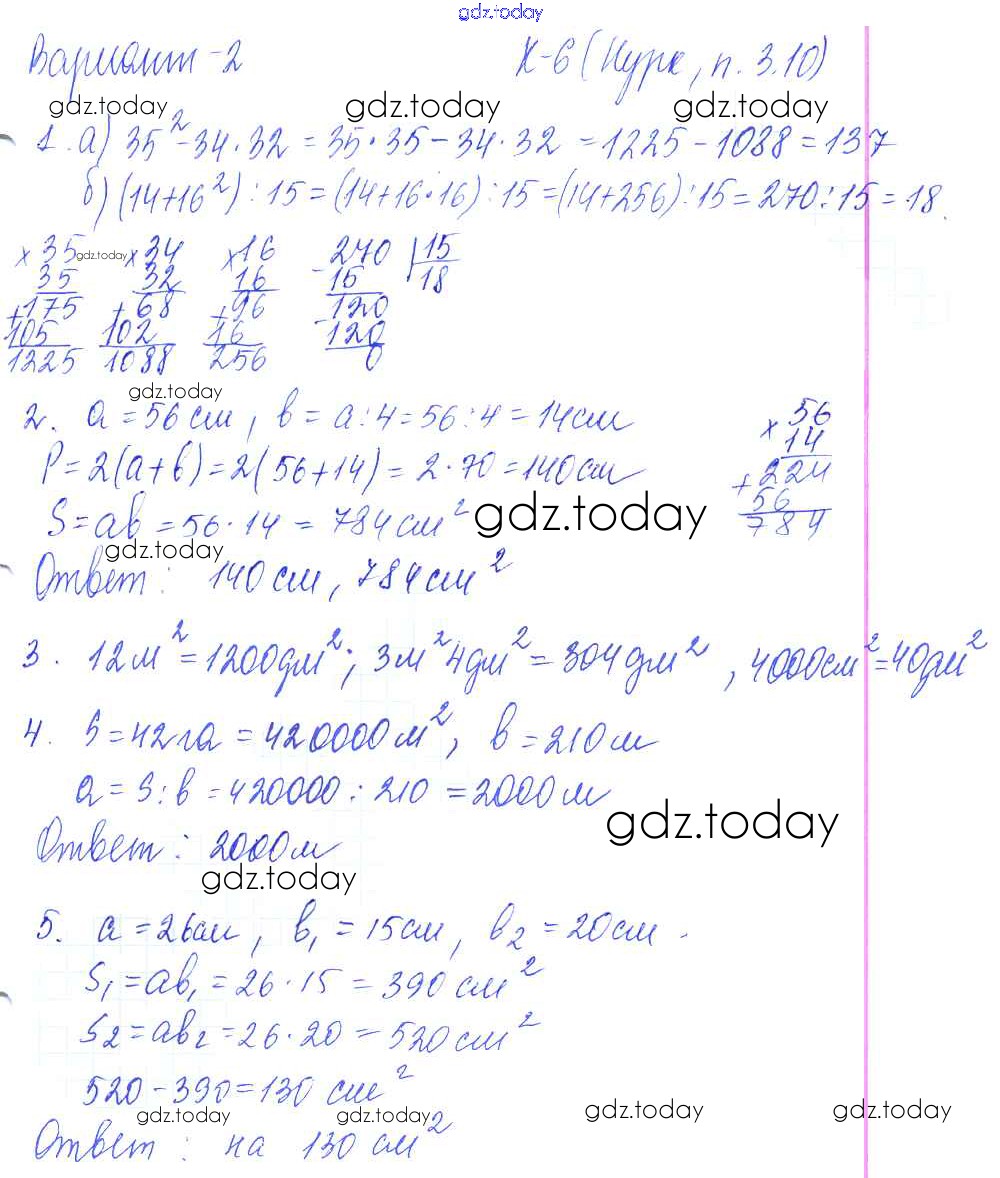 gdz.today
Вариант-2 К-6 (Нурк, п. 3.10)
gdz.today gdz.today gdz.today
1. а) 35² - 34 · 32 = 35 · 35 - 34 · 32 = 1225 - 1088 = 137
б) (14+16²) : 15 = (14+16·16) : 15 = (14+256) : 15 = 270 : 15 = 18.
× 35 gdz.today × 34 × 16 - 270 | 15
35 32 16 15 18
+ 175 + 68 + 96 - 120
105 102 16 120
1225 1088 256 0
gdz.today
2. a = 56 см, b = a : 4 = 56 : 4 = 14 см × 56
14
P = 2(a+b) = 2(56+14) = 2 · 70 = 140 см + 224
56
S = ab = 56 · 14 = 784 см² gdz.today 784
gdz.today
Ответ: 140 см, 784 см²
3. 12 м² = 1200 дм²; 3 м² 4 дм² = 304 дм², 4000 см² = 40 дм²
4. S = 42 га = 420000 м², b = 210 м
a = S : b = 420000 : 210 = 2000 м
gdz.today
Ответ: 2000 м
gdz.today
5. a = 26 см, b₁ = 15 см, b₂ = 20 см.
S₁ = ab₁ = 26 · 15 = 390 см²
S₂ = ab₂ = 26 · 20 = 520 см²
520 - 390 = 130 см²
gdz.today gdz.today gdz.today gdz.today
Ответ: на 130 см²